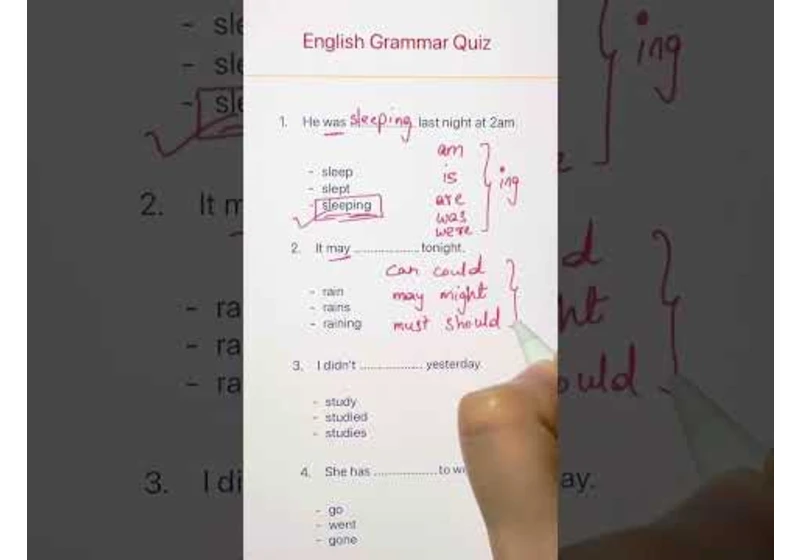 English Grammar Quiz
1. He was sleeping last night at 2am
am
- sleep
is
ing
- slept
are
- sleeping
was
were
2. It may ................... tonight.
can could
- rain
may might
- rains
must should
- raining
3. I didn't ................... yesterday
- study
- studied
- studies
4. She has ................... to w
- go
- went
- gone